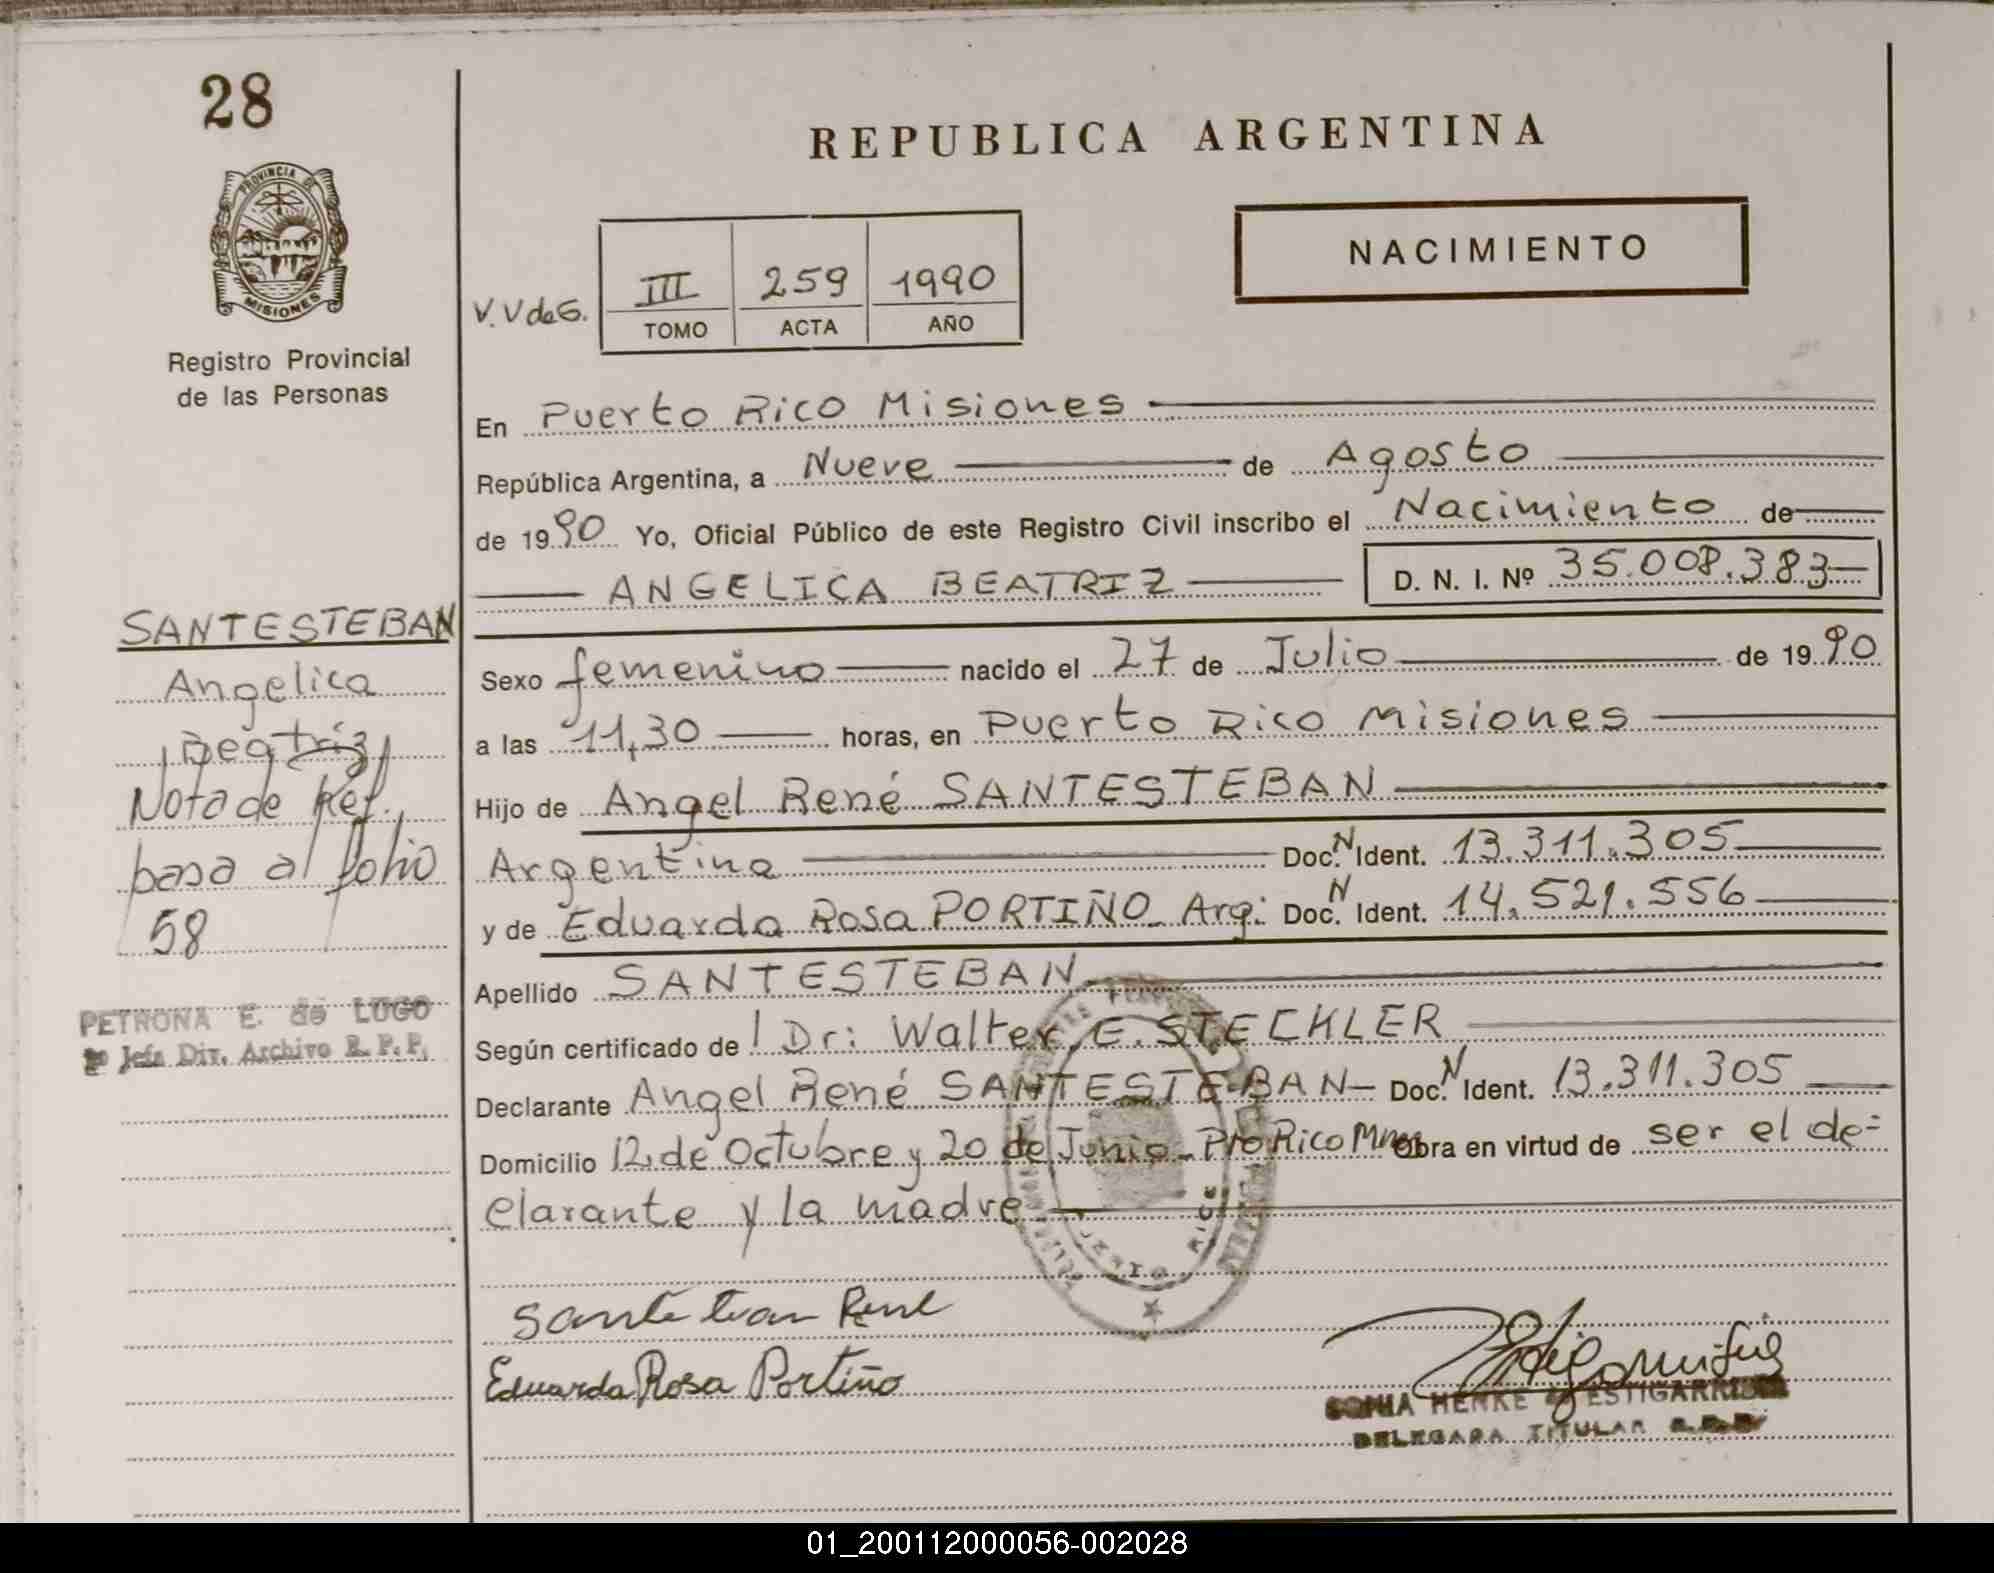 28
REPUBLICA ARGENTINA
PROVINCIA DE
MISIONES
NACIMIENTO
V.V de G.
III 259 1990
TOMO ACTA AÑO
Registro Provincial
de las Personas
En Puerto Rico Misiones
República Argentina, a Nueve de Agosto
de 1990 Yo, Oficial Público de este Registro Civil inscribo el Nacimiento de
ANGELICA BEATRIZ D. N. I. Nº 35.008.383
SANTESTEBAN
Angelica
Beatriz
Nota de Ref.
pasa al folio
58
PETRONA E. de LUGO
Jefa Div. Archivo R. P. P.
Sexo femenino nacido el 27 de Julio de 1990
a las 11,30 horas, en Puerto Rico Misiones
Hijo de Angel René SANTESTEBAN
Argentina Doc. N Ident. 13.311.305
y de Eduarda Rosa PORTIÑO Arg: Doc. N Ident. 14.521.556
Apellido SANTESTEBAN
Según certificado de Dr: Walter E. STECKLER
Declarante Angel René SANTESTEBAN Doc. N Ident. 13.311.305
Domicilio 12 de Octubre y 20 de Junio Pto Rico Mnes Obra en virtud de ser el de-
clarante y la madre
Eduarda Rosa Portiño
SONIA HENKE de ESTIGARRIBIA
DELEGADA TITULAR R.P.P.
01_200112000056-002028